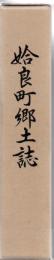 姶良町郷土誌